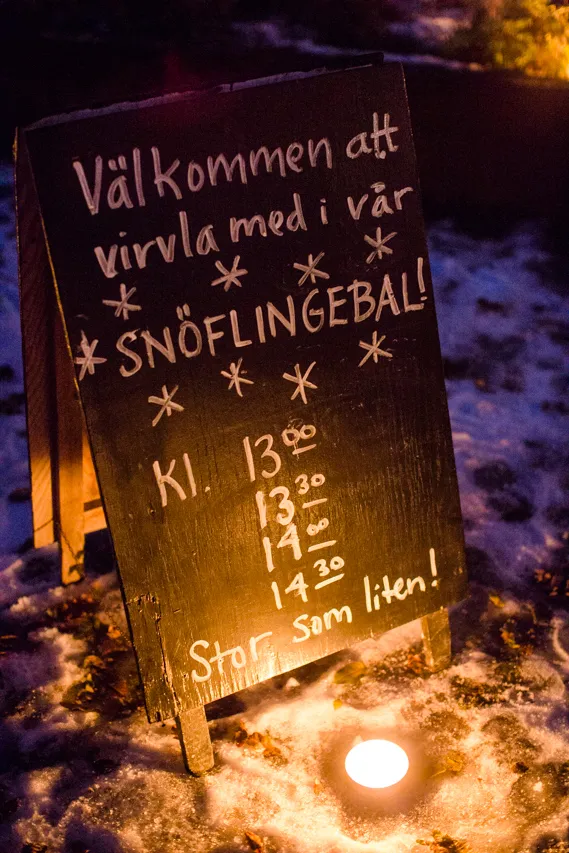 Välkommen att
virvla med i vår
SNÖFLINGEBAL!
Kl. 13 00
13 30
14 00
14 30
Stor som liten!